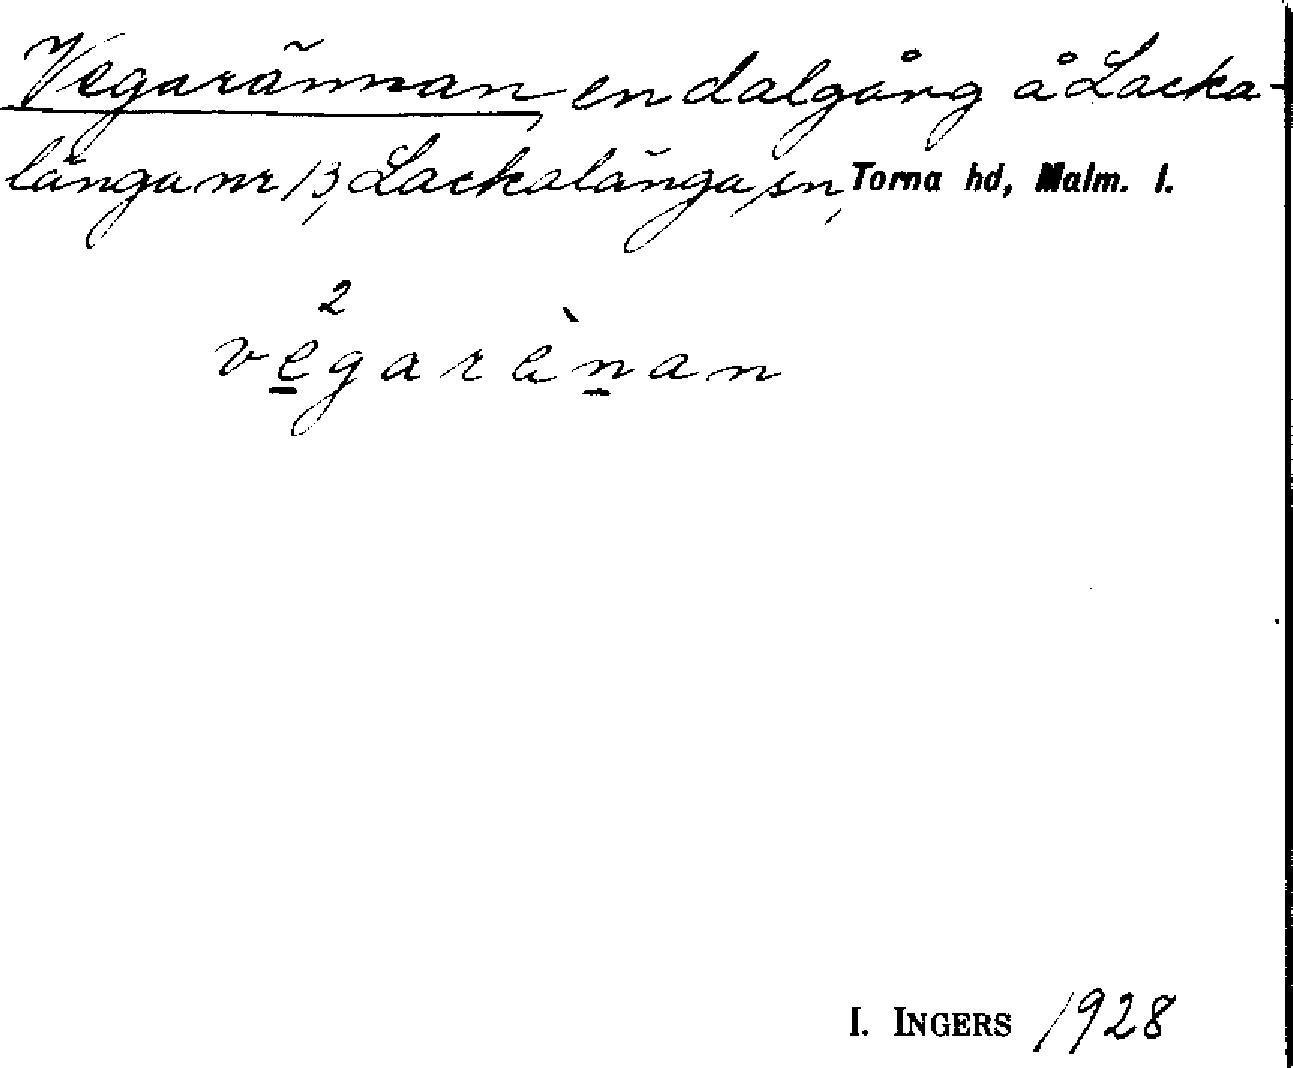 Vegarännan en dalgång å Lacka-
länga nr 13, Lackalänga sn, Torna hd, Malm. l.
2
vegarènan
I. INGERS 1928